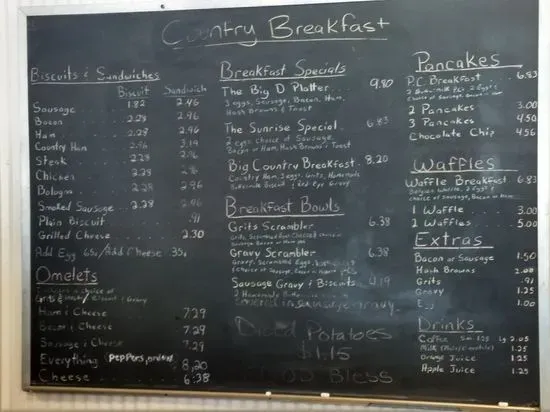 Country Breakfast
Biscuits & Sandwiches
Biscuit Sandwich
Sausage 1.82 2.46
Bacon 2.28 2.96
Ham 2.28 2.96
Country Ham 2.96 3.19
Steak 2.28 2.96
Chicken 2.28 2.96
Bologna 2.28 2.96
Smoked Sausage 2.28 2.96
Plain Biscuit .91
Grilled Cheese 2.30
Add Egg 65¢/Add Cheese 35¢
Omelets
choice of
Grits & Biscuit & Gravy
Ham & Cheese 7.29
Bacon & Cheese 7.29
Sausage & Cheese 7.29
Everything (Peppers, onions) 8.20
Cheese 6.38
Breakfast Specials
The Big D Platter 9.80
3 eggs, Sausage, Bacon, Ham,
Hash Browns & Toast
The Sunrise Special 6.83
2 eggs choice of Sausage,
Bacon or Ham, Hash Browns & Toast
Big Country Breakfast 8.20
Country Ham, 2 eggs, Grits, Homemade
Buttermilk Biscuit & Red Eye Gravy
Breakfast Bowls
Grits Scrambler 6.38
Grits, Scrambled Eggs, Cheese &
Sausage Bacon or Ham
Gravy Scrambler 6.38
Gravy, Scrambled Eggs,
& Choice of Sausage, Bacon or
Sausage Gravy & Biscuits 4.19
2 Homemade Buttermilk
Covered in sausage gravy
Diced Potatoes
$1.15
Bless
Pancakes
P.C. Breakfast 6.83
2 Buttermilk PCs 2 Eggs &
Choice of Sausage, Bacon or Ham
2 Pancakes 3.00
3 Pancakes 4.50
Chocolate Chip 4.56
Waffles
Waffle Breakfast 6.83
Belgian Waffle, 2 Eggs &
choice of Sausage, Bacon or Ham
1 Waffle 3.00
2 Waffles 5.00
Extras
Bacon or Sausage 1.50
Hash Browns 2.00
Grits .91
Gravy 1.25
1.00
Drinks
Coffee Sm. 1.25 Lg. 2.05
Milk 1.25
Orange Juice 1.25
Apple Juice 1.25